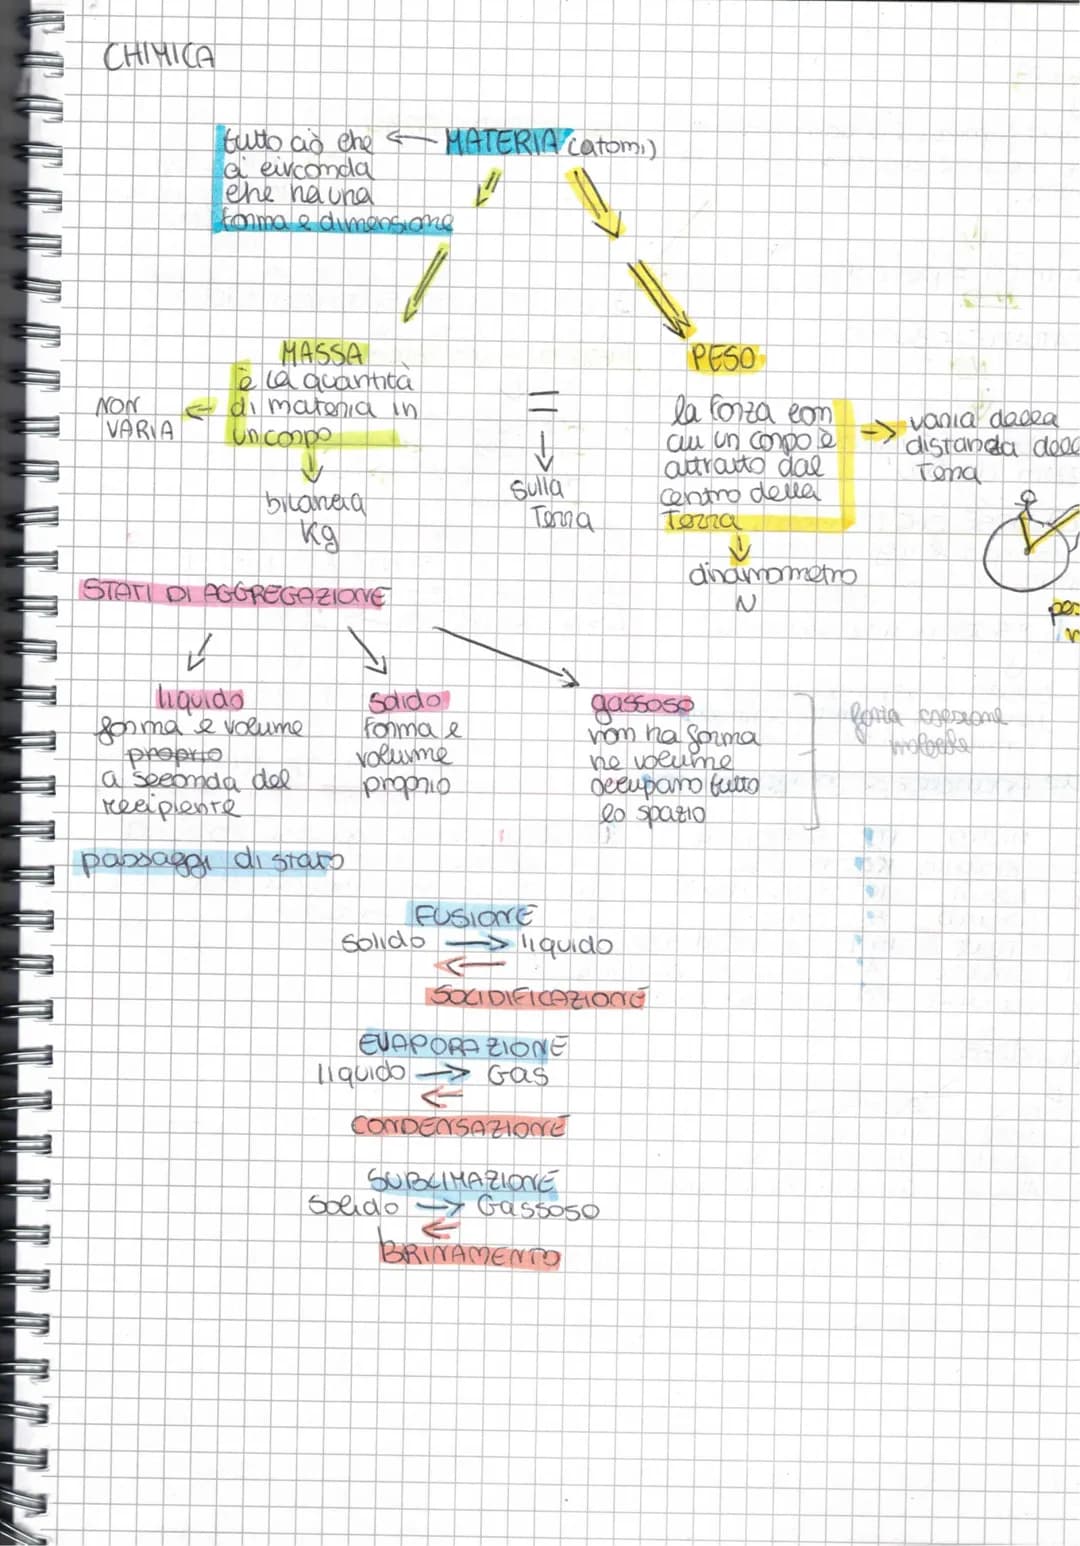 CHIMICA
tutto ciò che ← MATERIA (atomi)
ci circonda
che ha una
forma e dimensione
MASSA
è la quantità
di materia in
un corpo
NON
VARIA
bilancia
Kg
=
sulla
Terra
PESO
la forza con
cui un corpo è
attratto dal
centro della
Terra
varia dalla
distanza dell
Terra
dinamometro
N
STATI DI AGGREGAZIONE
liquido
forma e volume
proprio
a seconda del
recipiente
solido
forma e
volume
proprio
gassoso
non ha forma
ne volume
occupano tutto
lo spazio
forza coesione
passaggi di stato
FUSIONE
solido → liquido
←
SOLIDIFICAZIONE
EVAPORAZIONE
liquido → Gas
←
CONDENSAZIONE
SUBLIMAZIONE
solido → Gassoso
←
BRINAMENTO